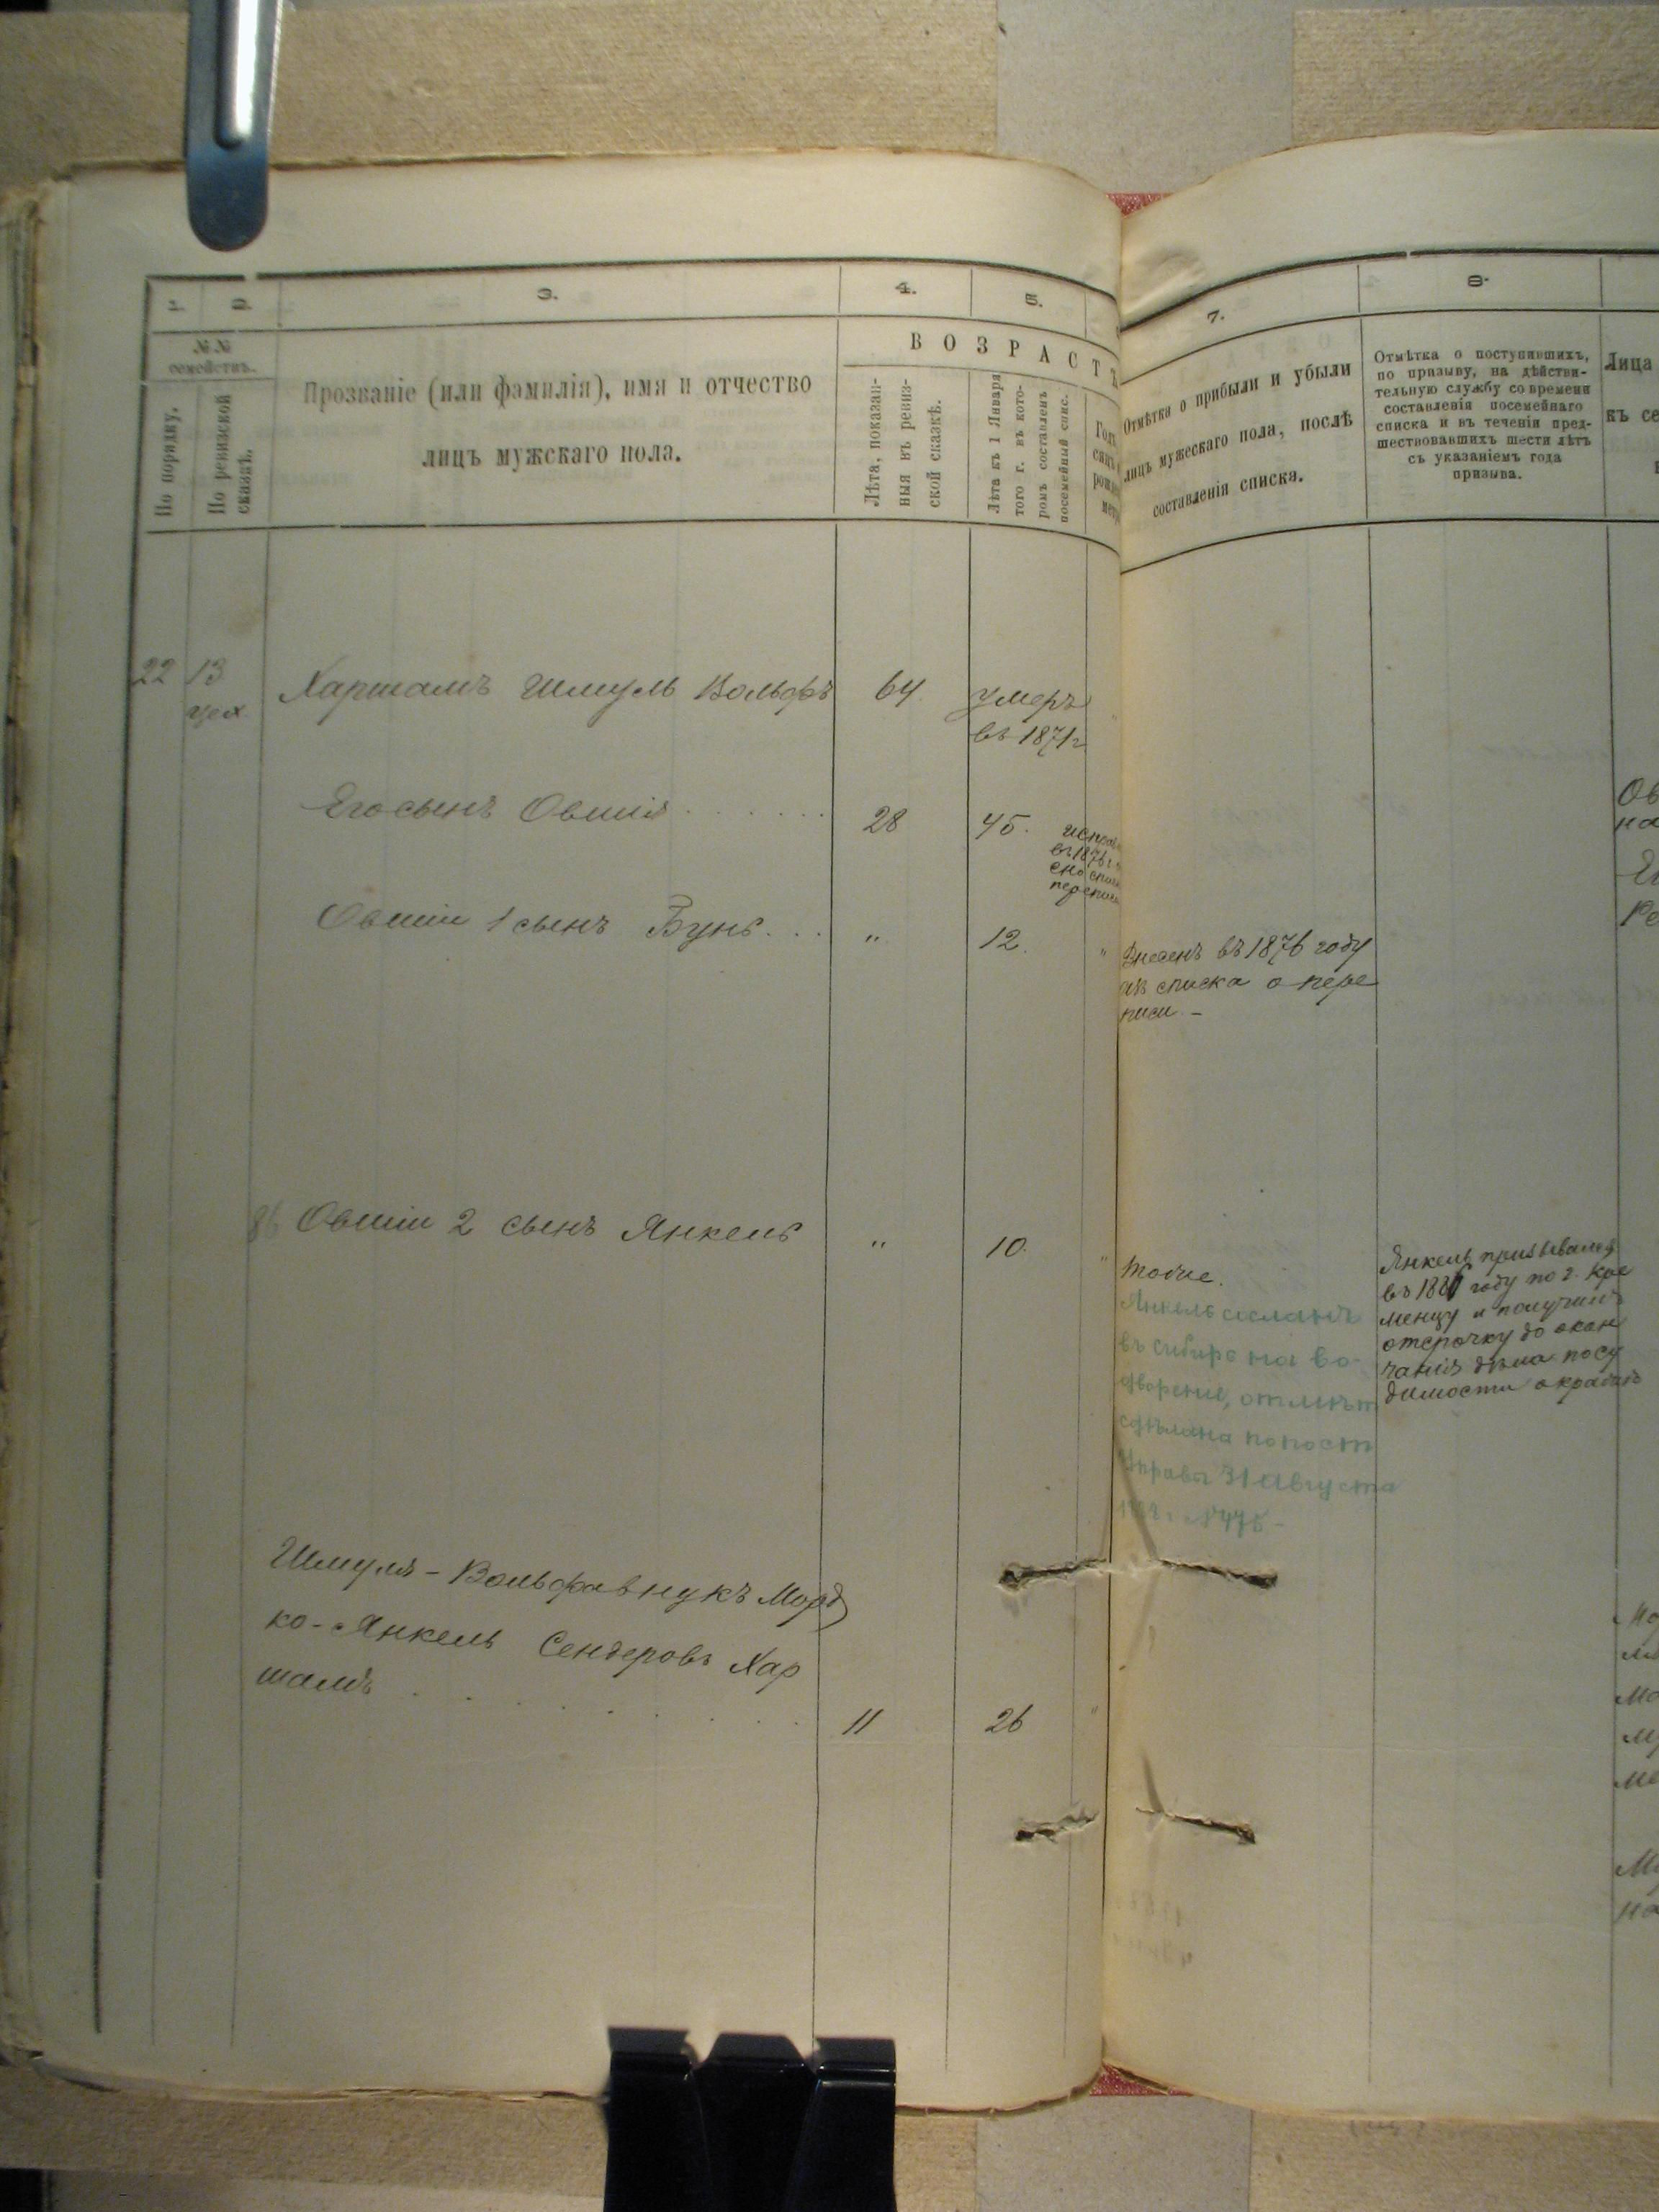 1. 2. 3. 4. 5.
№№ семействъ.
По порядку.
По ревизской сказкѣ.
Прозваніе (или фамилія), имя и отчество
лицъ мужскаго пола.
ВОЗРАСТЪ
Лѣта, показан-
ныя въ ревиз-
ской сказкѣ.
Лѣта къ 1 Января
того г. въ кото-
ромъ составленъ
посемейный спис.
7. 8.
Отмѣтка о прибыли и убыли
лицъ мужескаго пола, послѣ
составленія списка.
Отмѣтка о поступившихъ,
по призыву, на дѣйстви-
тельную службу со времени
составленія посемейнаго
списка и въ теченіи пред-
шествовавшихъ шести лѣтъ
съ указаніемъ года
призыва.
Лица
къ се
22 13 Харшамъ Шмуль Вольфъ 64 умеръ
цех въ 1871г
Его сынъ Овшія 28 45.
въ 1876 г.
Овшіи 1 сынъ Бунь " 12. "
Внесенъ въ 1876 году
изъ списка о пере
писи. –
86 Овшіи 2 сынъ Янкель " 10. "
тоже.
Янкель сосланъ
въ сибирь на во-
двореніе, отмѣт
сдѣлана по пост
Управы 31 Августа
Янкель призывался
году по г. Кре
менцу и получилъ
отсрочку до окон
чанія дѣла по су
димости о кражѣ
Шмуля-Вольфа внукъ Морд
ко-Янкель Сендеровъ Хар
шамъ 11 26 "